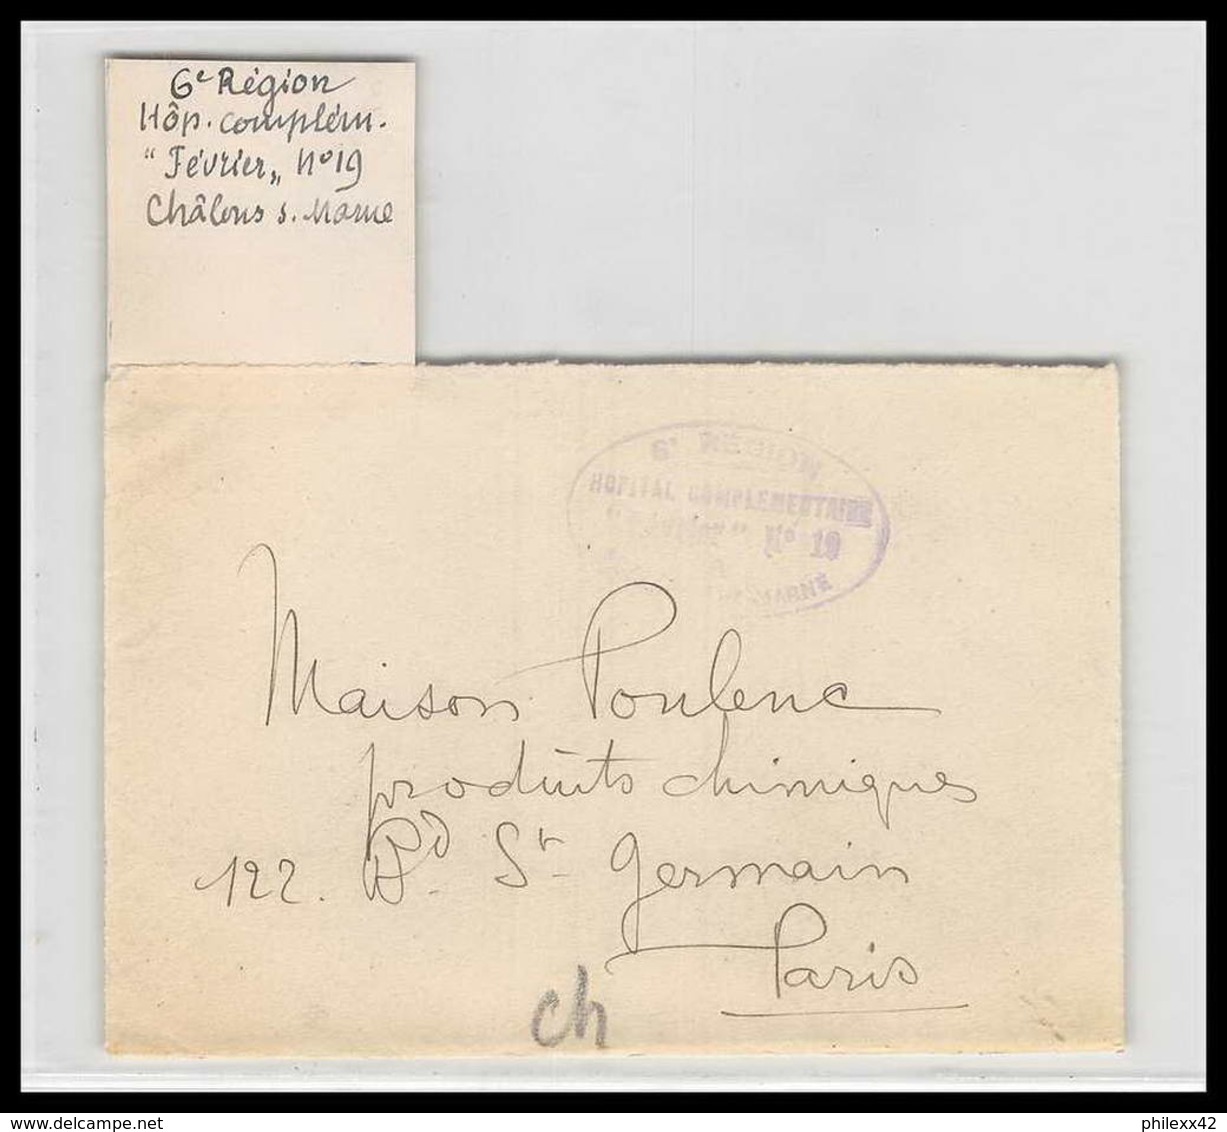 6e Région
Hôp. complém.
"Février„ n°19
Châlons s. Marne
6e RÉGION
HOPITAL COMPLEMENTAIRE
N° 19
MARNE
Maison Poulenc
produits chimiques
122. Bd. St- Germain
Paris
ch
delcampe.net
philexx42